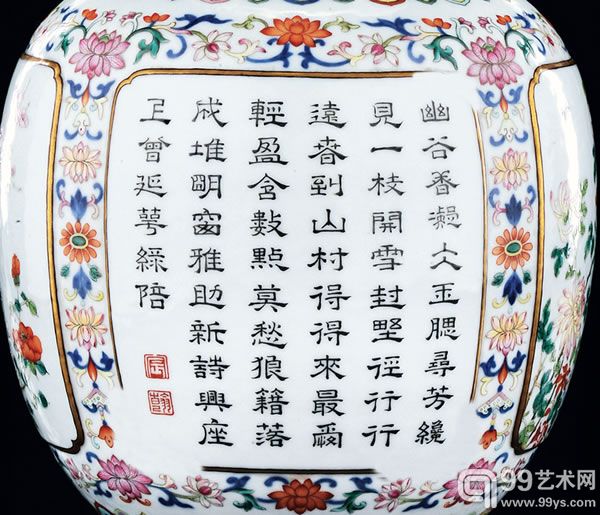 幽谷香凝仌玉腮尋芳纔
見一枝開雪封野徑行行
遠春到山村得得來最爾
輕盈含數點莫愁狼籍落
成堆明窗雅助新詩興座
上曾延萼綠陪
宸
翰
99艺术网
www.99ys.com